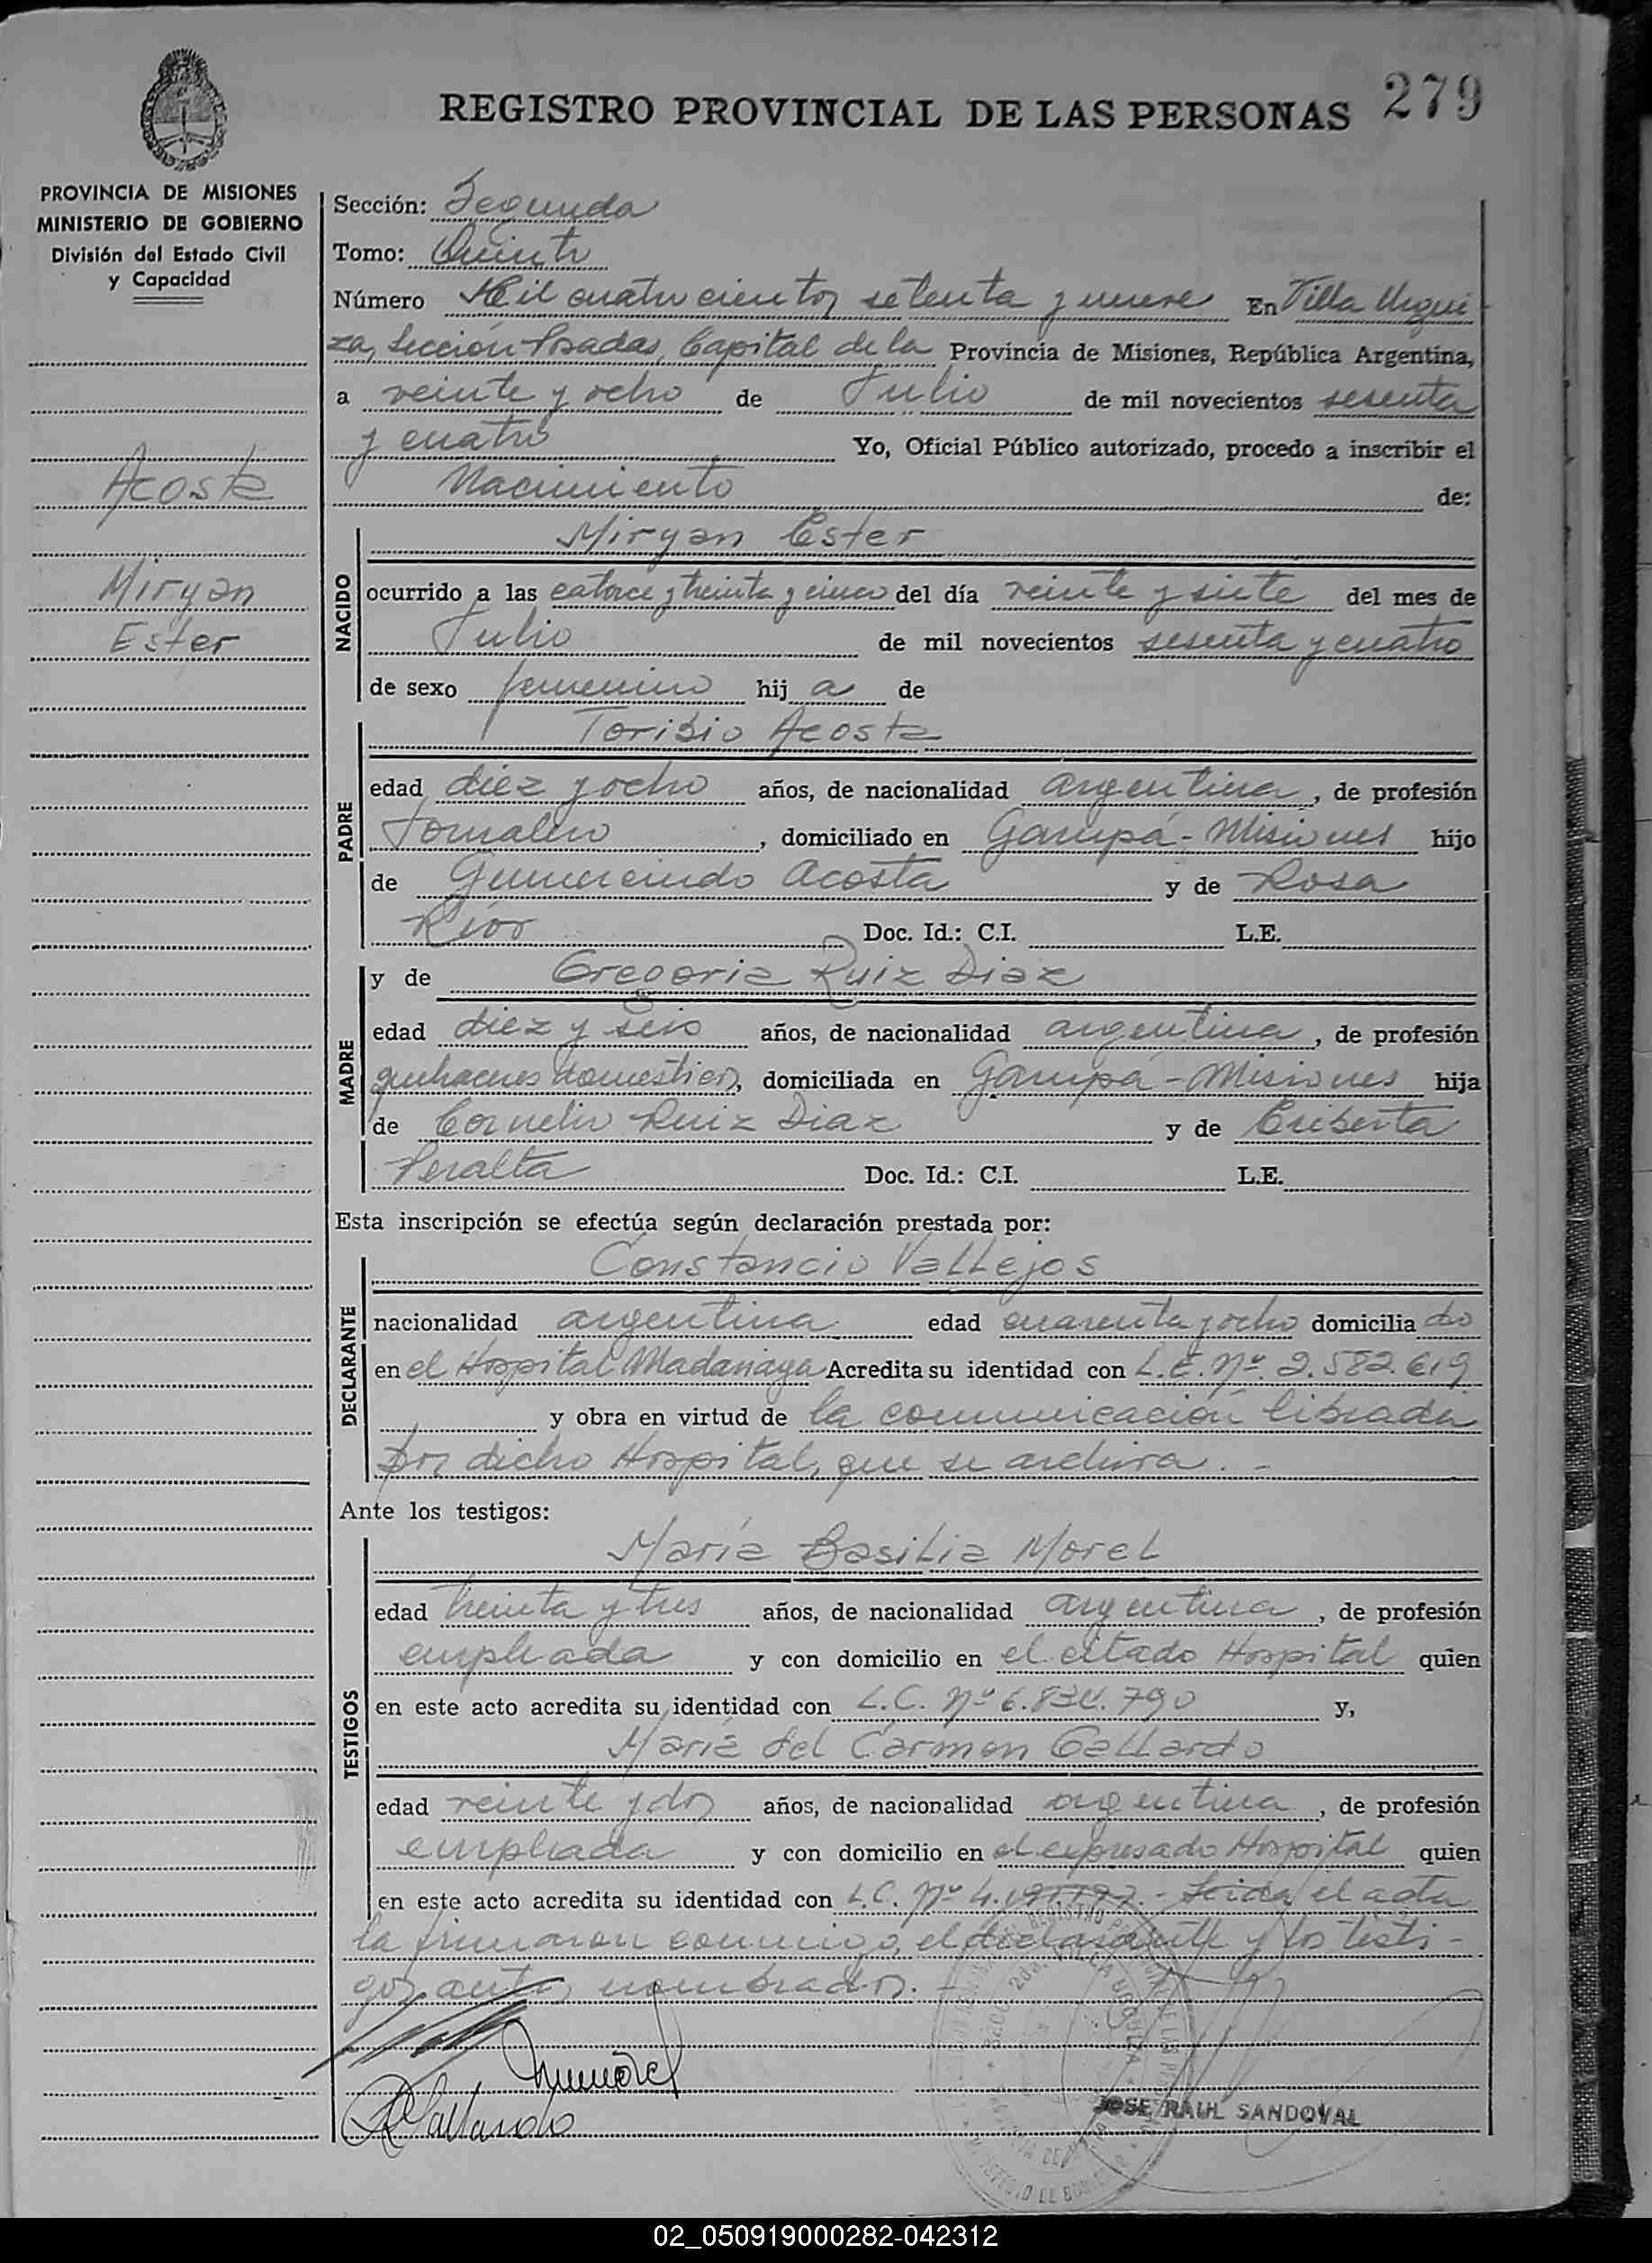 REGISTRO PROVINCIAL DE LAS PERSONAS 279
PROVINCIA DE MISIONES
MINISTERIO DE GOBIERNO
División del Estado Civil
y Capacidad
Acosta
Miryan
Ester
Sección: Segunda
Tomo: Quinto
Número Mil cuatrocientos setenta y nueve En Villa Urqui
za, Sección Posadas, Capital de la Provincia de Misiones, República Argentina,
a veinte y ocho de Julio de mil novecientos sesenta
y cuatro Yo, Oficial Público autorizado, procedo a inscribir el
Nacimiento de:
NACIDO
Miryan Ester
ocurrido a las catorce y treinta y cinco del día veinte y siete del mes de
Julio de mil novecientos sesenta y cuatro
de sexo femenino hij a de
PADRE
Toribio Acosta
edad diez y ocho años, de nacionalidad argentina, de profesión
Jornalero, domiciliado en Garupá - Misiones hijo
de Gumercindo Acosta y de Rosa
Ríos Doc. Id.: C.I. L.E.
MADRE
y de Gregoria Ruiz Diaz
edad diez y seis años, de nacionalidad argentina, de profesión
quehaceres domésticos, domiciliada en Garupá - Misiones hija
de Cornelio Ruiz Diaz y de Eriberta
Peralta Doc. Id.: C.I. L.E.
Esta inscripción se efectúa según declaración prestada por:
DECLARANTE
Constancio Vallejos
nacionalidad argentina edad cuarenta y ocho domicilia do
en el Hospital Madariaga Acredita su identidad con L.E. Nº 2.582.619
y obra en virtud de la comunicación librada
por dicho Hospital, que se archiva. -
Ante los testigos:
TESTIGOS
María Basilia Morel
edad treinta y tres años, de nacionalidad argentina, de profesión
empleada y con domicilio en el citado Hospital quien
en este acto acredita su identidad con L.C. Nº 6.834.790 y,
María del Carmen Gallardo
edad veinte y dos años, de nacionalidad argentina, de profesión
empleada y con domicilio en el expresado Hospital quien
en este acto acredita su identidad con L.C. Nº - Leida el acta
la firmaron conmigo, el declarante y los testi-
gos antes nombrados. -
JOSE RAUL SANDOVAL
02_050919000282-042312